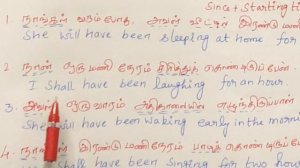 Since + Starting ti
1. நாங்கள் வரும் போது, அவள் வீட்டில் இரண்டு மணி
She will have been sleeping at home for
2. நான் ஒரு மணி நேரம் சிரித்துக் கொண்டிருப்பேன்.
I shall have been laughing for an hour.
3. அவள் ஒரு வாரம் அதிகாலையில்
She will have been waking early in the morni
4. நாங்கள் இரண்டு மணி நேரம் பாடிக் கொண்டிருப்போ
shall have been singing for two hou